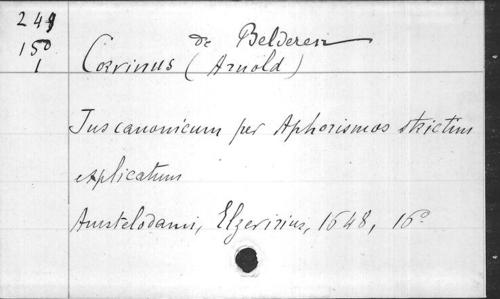 249
150
1
de Belderen
Corvinus (Arnold)
Jus canonicum per Aphorismos strictim
explicatum
Amstelodami, Elzevirius, 1648, 16°